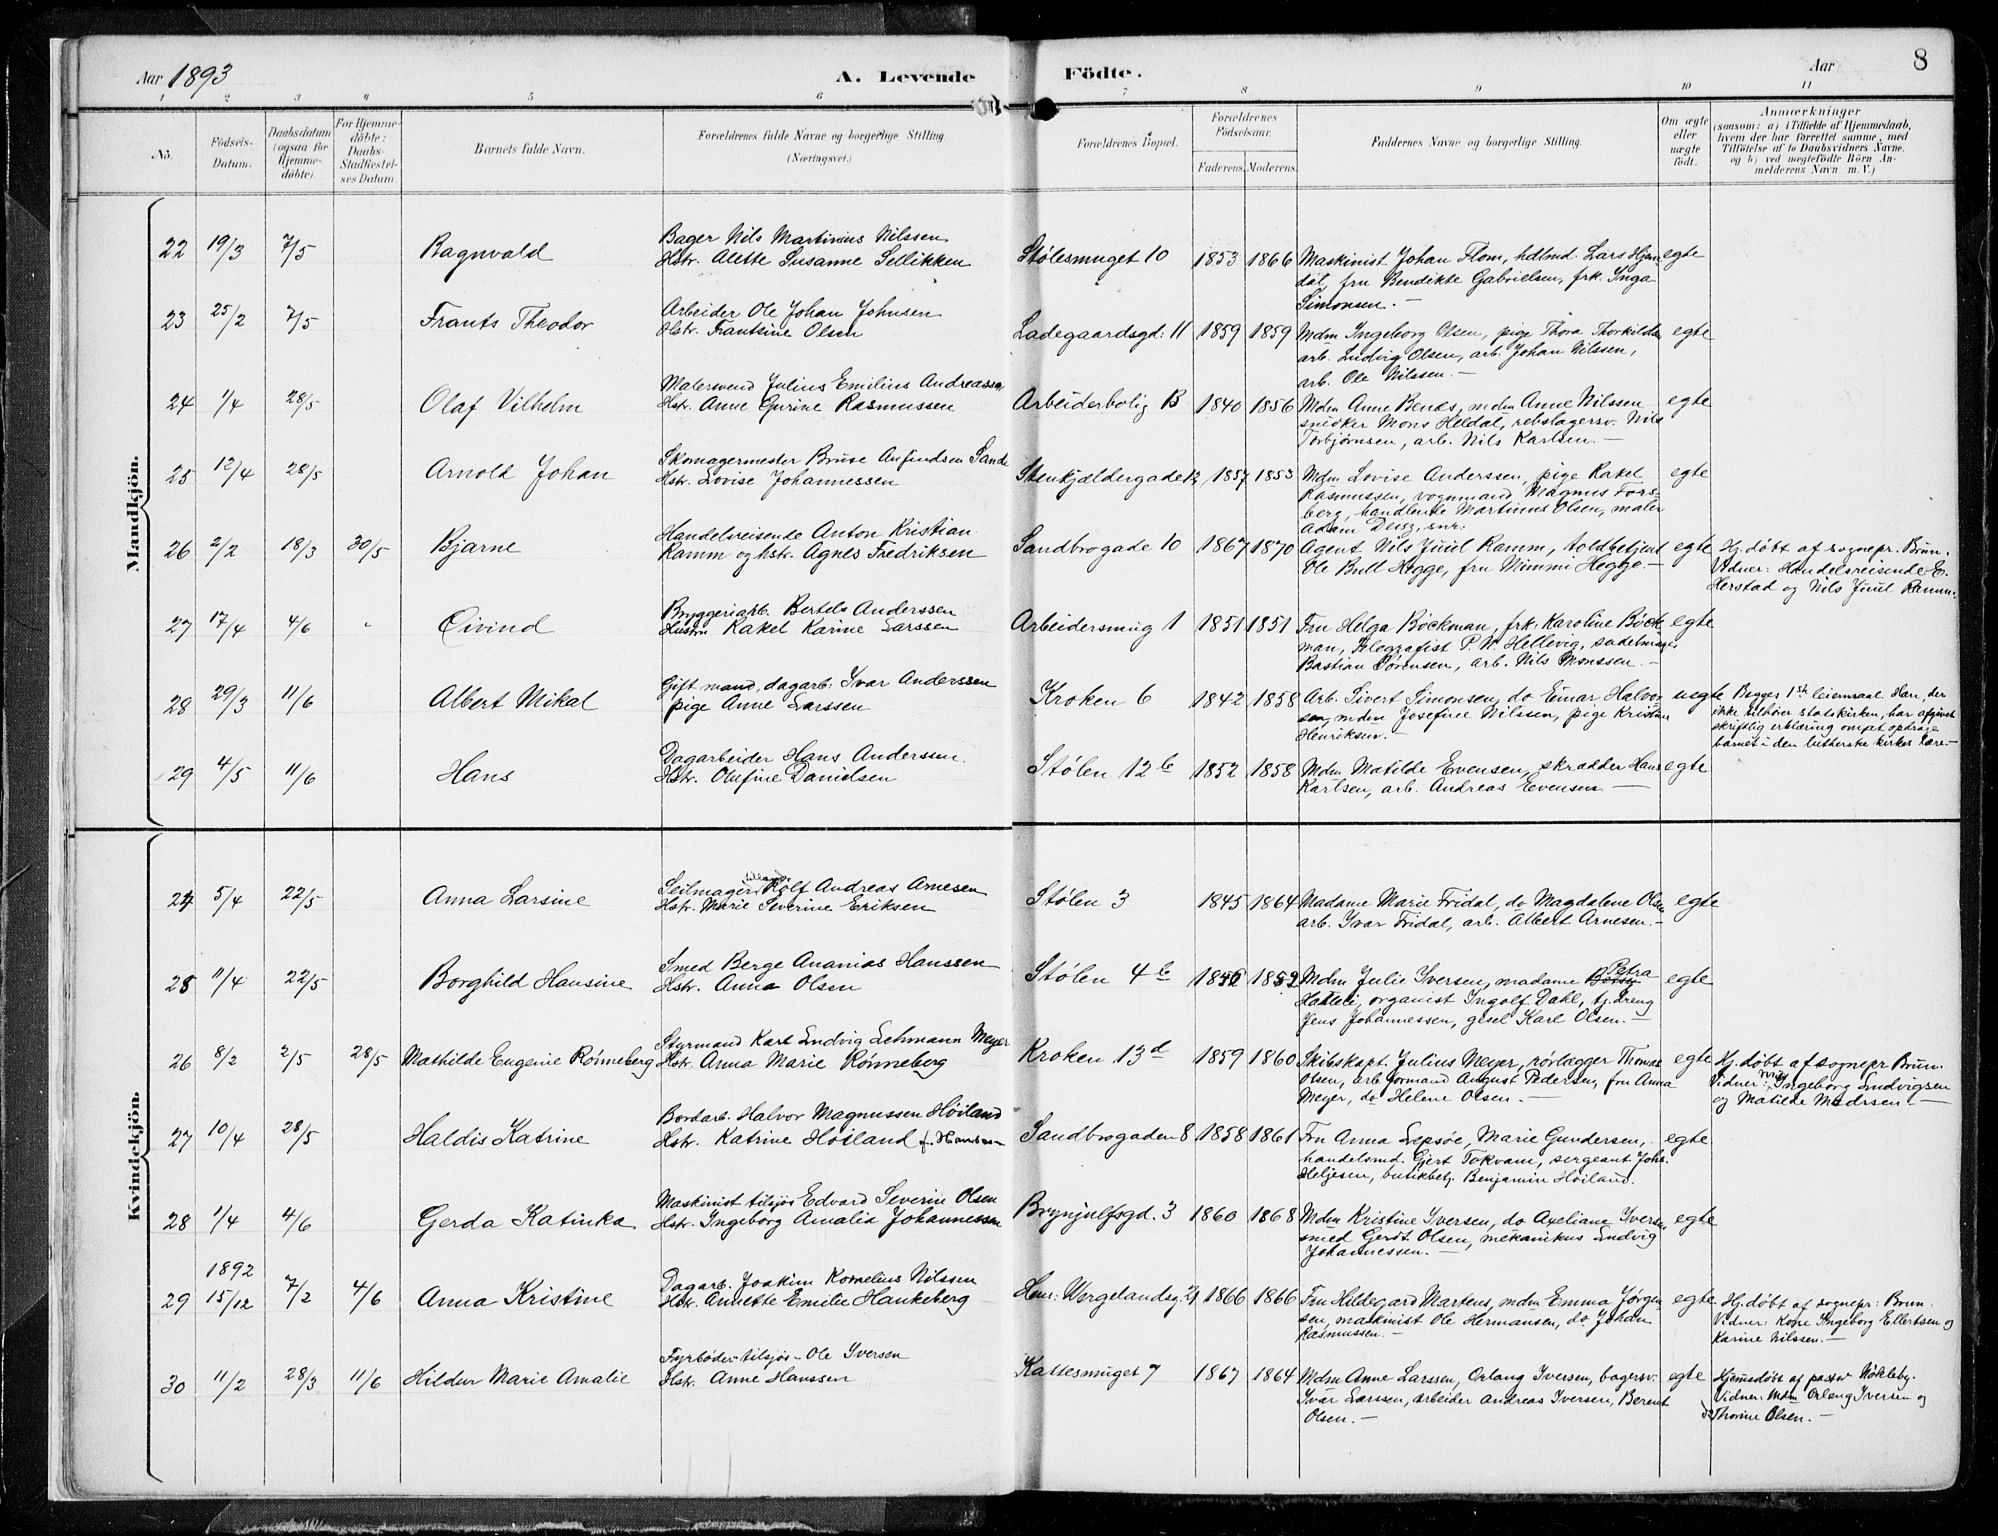 Aar 1893
A. Levende Födte.
Aar
8
1 2 3 4 5 6 7 8 9 10 11
No.
Födsels-
Datum.
Daabsdatum
(ogsaa for
Hjemme-
döbte).
For Hjemme-
döbte:
Daabs-
Stadfæstel-
ses Datum.
Barnets fulde Navn.
Forældrenes fulde Navne og borgerlige Stilling
(Næringsvei.)
Forældrenes Bopæl.
Forældrenes
Födselsaar.
Faderens. Moderens.
Faddernes Navne og borgerlige Stilling.
Om ægte
eller
uægte
födt.
Anmærkninger
(saasom: a) i Tilfælde af Hjemmedaab,
hvem der har forrettet samme, med
Tilföielse af to Daabsvidners Navne.
og b) ved uægtefödte Börn An-
melderens Navn m.V.)
Mandkjön.
22 19/3 7/5 Ragnvald
Bager Nils Martinius Nilssen
Hstr. Alette Susanne Sellikken
Stølesmuget 10 1853 1866
Maskinist Johan Flom, hdlmd. Lars Hjen-
dal, fru Bendikte Gabrielsen, frk. Inga
Simonsen. —
egte
23 25/2 7/5 Frants Theodor
Arbeider Ole Johan Johnsen
Hstr. Frantsine Olsen
Ladegaardsgd. 11 1859 1859
Mdm Ingeborg Olsen, pige Thora Thorkildsen
arb. Ludvig Olsen, arb. Johan Nilssen,
arb. Ole Nilssen. —
egte
24 1/4 28/5 Olaf Vilhelm
Malersvend Julius Emilius Andreassen
Hstr. Anne Gurine Rasmussen
Arbeiderbolig B 1840 1856
Mdm Anne Benes, mdm Anne Nilssen
snidker Mons Heldal, rebslagersv. Nils
Torbjørnsen, arb. Nils Karlsen. —
egte
25 12/4 28/5 Arnold Johan
Skomagermester Bruse Anfindsen Sande
Hstr. Lovise Johannessen
Stenkjældergade 12 1857 1853
Mdm Lovise Anderssen, pige Rakel
Rasmussen, vognmand Magnus Fors-
berg, handlende Martinus Olsen, maler
Adam Deisz, snr.
egte
26 2/2 18/3 30/5 Bjarne
Handelsreisende Anton Kristian
Ramm og hstr. Agnes Fredriksen
Sandbrogade 10 1867 1870
Agent Nils Juul Ramm, toldbetjent
Ole Bull Hegge, fru Mimmi Hegge. —
egte
Hj. døbt af sognepr. Brun.
Vidner: Handelsreisende E.
Herstad og Nils Juul Ramm.
27 17/4 4/6 Øivind
Bryggeriarb. Bertels Anderssen
Hustru Rakel Karine Larssen
Arbeidersmug 1 1851 1851
Fru Helga Böckman, frk. Karoline Böck-
man, Telegrafist P. W. Hellevig, sadelmager
Bastian Sørensen, arb. Nils Monssen. —
egte
28 29/3 11/6 Albert Mikal
Gift mand, dagarb. Ivar Anderssen
pige Anne Larssen
Kroken 6 1842 1858
Arb. Sivert Simonsen, do Einar Halvor-
sen, mdm Josefine Nilssen, pige Kristine
Henriksen. —
uegte
Begges 1ste leiermaal. Han, der
ikke tilhører statskirken, har afgivet
skriftlig erklæring om at opdrage
barnet i den lutherske kirkes lære. —
29 4/5 11/6 Hans
Dagarbeider Hans Anderssen.
Hstr. Olufine Danielsen
Stølen 12 b 1852 1858
Mdm Matilde Evensen, skrædder Hans
Karlsen, arb. Andreas Evensen —
egte
Kvindekjön.
24 5/4 22/5 Anna Larsine
Seilmager Rolf Andreas Arnesen
Hstr. Marie Severine Eriksen
Stølen 3 1845 1864
Madame Marie Fridal, do Magdalene Olsen
arb. Ivar Fridal, arb. Albert Arnesen. —
egte
25 11/4 22/5 Borghild Hansine
Smed Berge Ananias Hanssen
Hstr. Anna Olsen
Stølen 4 b 1852
Mdm Julie Iversen, madame Betsy Petra
Hatlei, organist Ingolf Dahl, tj. dreng
Jens Johannessen, gesel Karl Olsen. —
egte
26 8/2 2/5 28/5 Mathilde Eugenie Rønneberg
Styrmand Karl Ludvig Lehmann Meyer
Hstr. Anna Marie Rønneberg
Kroken 13 d 1859 1860
Skibskapt. Julius Meyer, rörlægger Thomas
Olsen, arb. formand August Pedersen, fru Anna
Meyer, do Helene Olsen. —
egte
Hj. døbt af sognepr Brun.
Vidner: Ingeborg Ludvigsen
og Matilde Madssen. —
27 10/4 28/5 Haldis Katrine
Bordarb. Halvor Magnussen Höiland
Hstr. Katrine Höiland f. Hansen
Sandbrogaden 8 1858 1861
Fru Anna Lepsöe, Marie Gundersen,
handelsmd. Gjert Tokvam, sergeant Johs.
Heljesen, butikbetj. Benjamin Höiland.
egte
28 1/4 4/6 Gerda Katinka
Maskinist tilsjös Edvard Severin Olsen
Hstr. Ingeborg Amalia Johannessen
Brynjulfsgd. 3 1860 1868
Mdm Kristine Iversen, do Axeliane Iversen
smed Gerdt Olsen, mekanikus Ludvig
Johannessen. —
egte
29 1892 15/12 7/2 4/6 Anna Kristine
Dagarb. Joakim Kornelius Nilssen
Hstr. Annette Emilie Hankeberg
Hen: Wergelandsg. 29 1866 1866
Fru Hildegard Martens, mdm Emma Jørgen-
sen, maskinist Ole Hermansen, do Johan
Rasmussen. —
egte
Hj. døbt af sognepr: Brun.
Vidner: Kone Ingeborg Ellertsen og
Karine Nilssen. —
30 11/2 28/3 11/6 Hildur Marie Amalie
Fyrbøder tilsjøs – Ole Iversen
Hstr. Anne Hanssen
Kattesmuget 7 1867 1864
Mdm Anne Larssen, Orlaug Iversen, bagersv.
Ivar Larssen, arbeider Andreas Iversen, Berent
Olsen. —
egte
Hjemdøbt af pastor Nökleby.
Vidner: Mdm Orlaug Iversen og
do Thorine Olsen. —